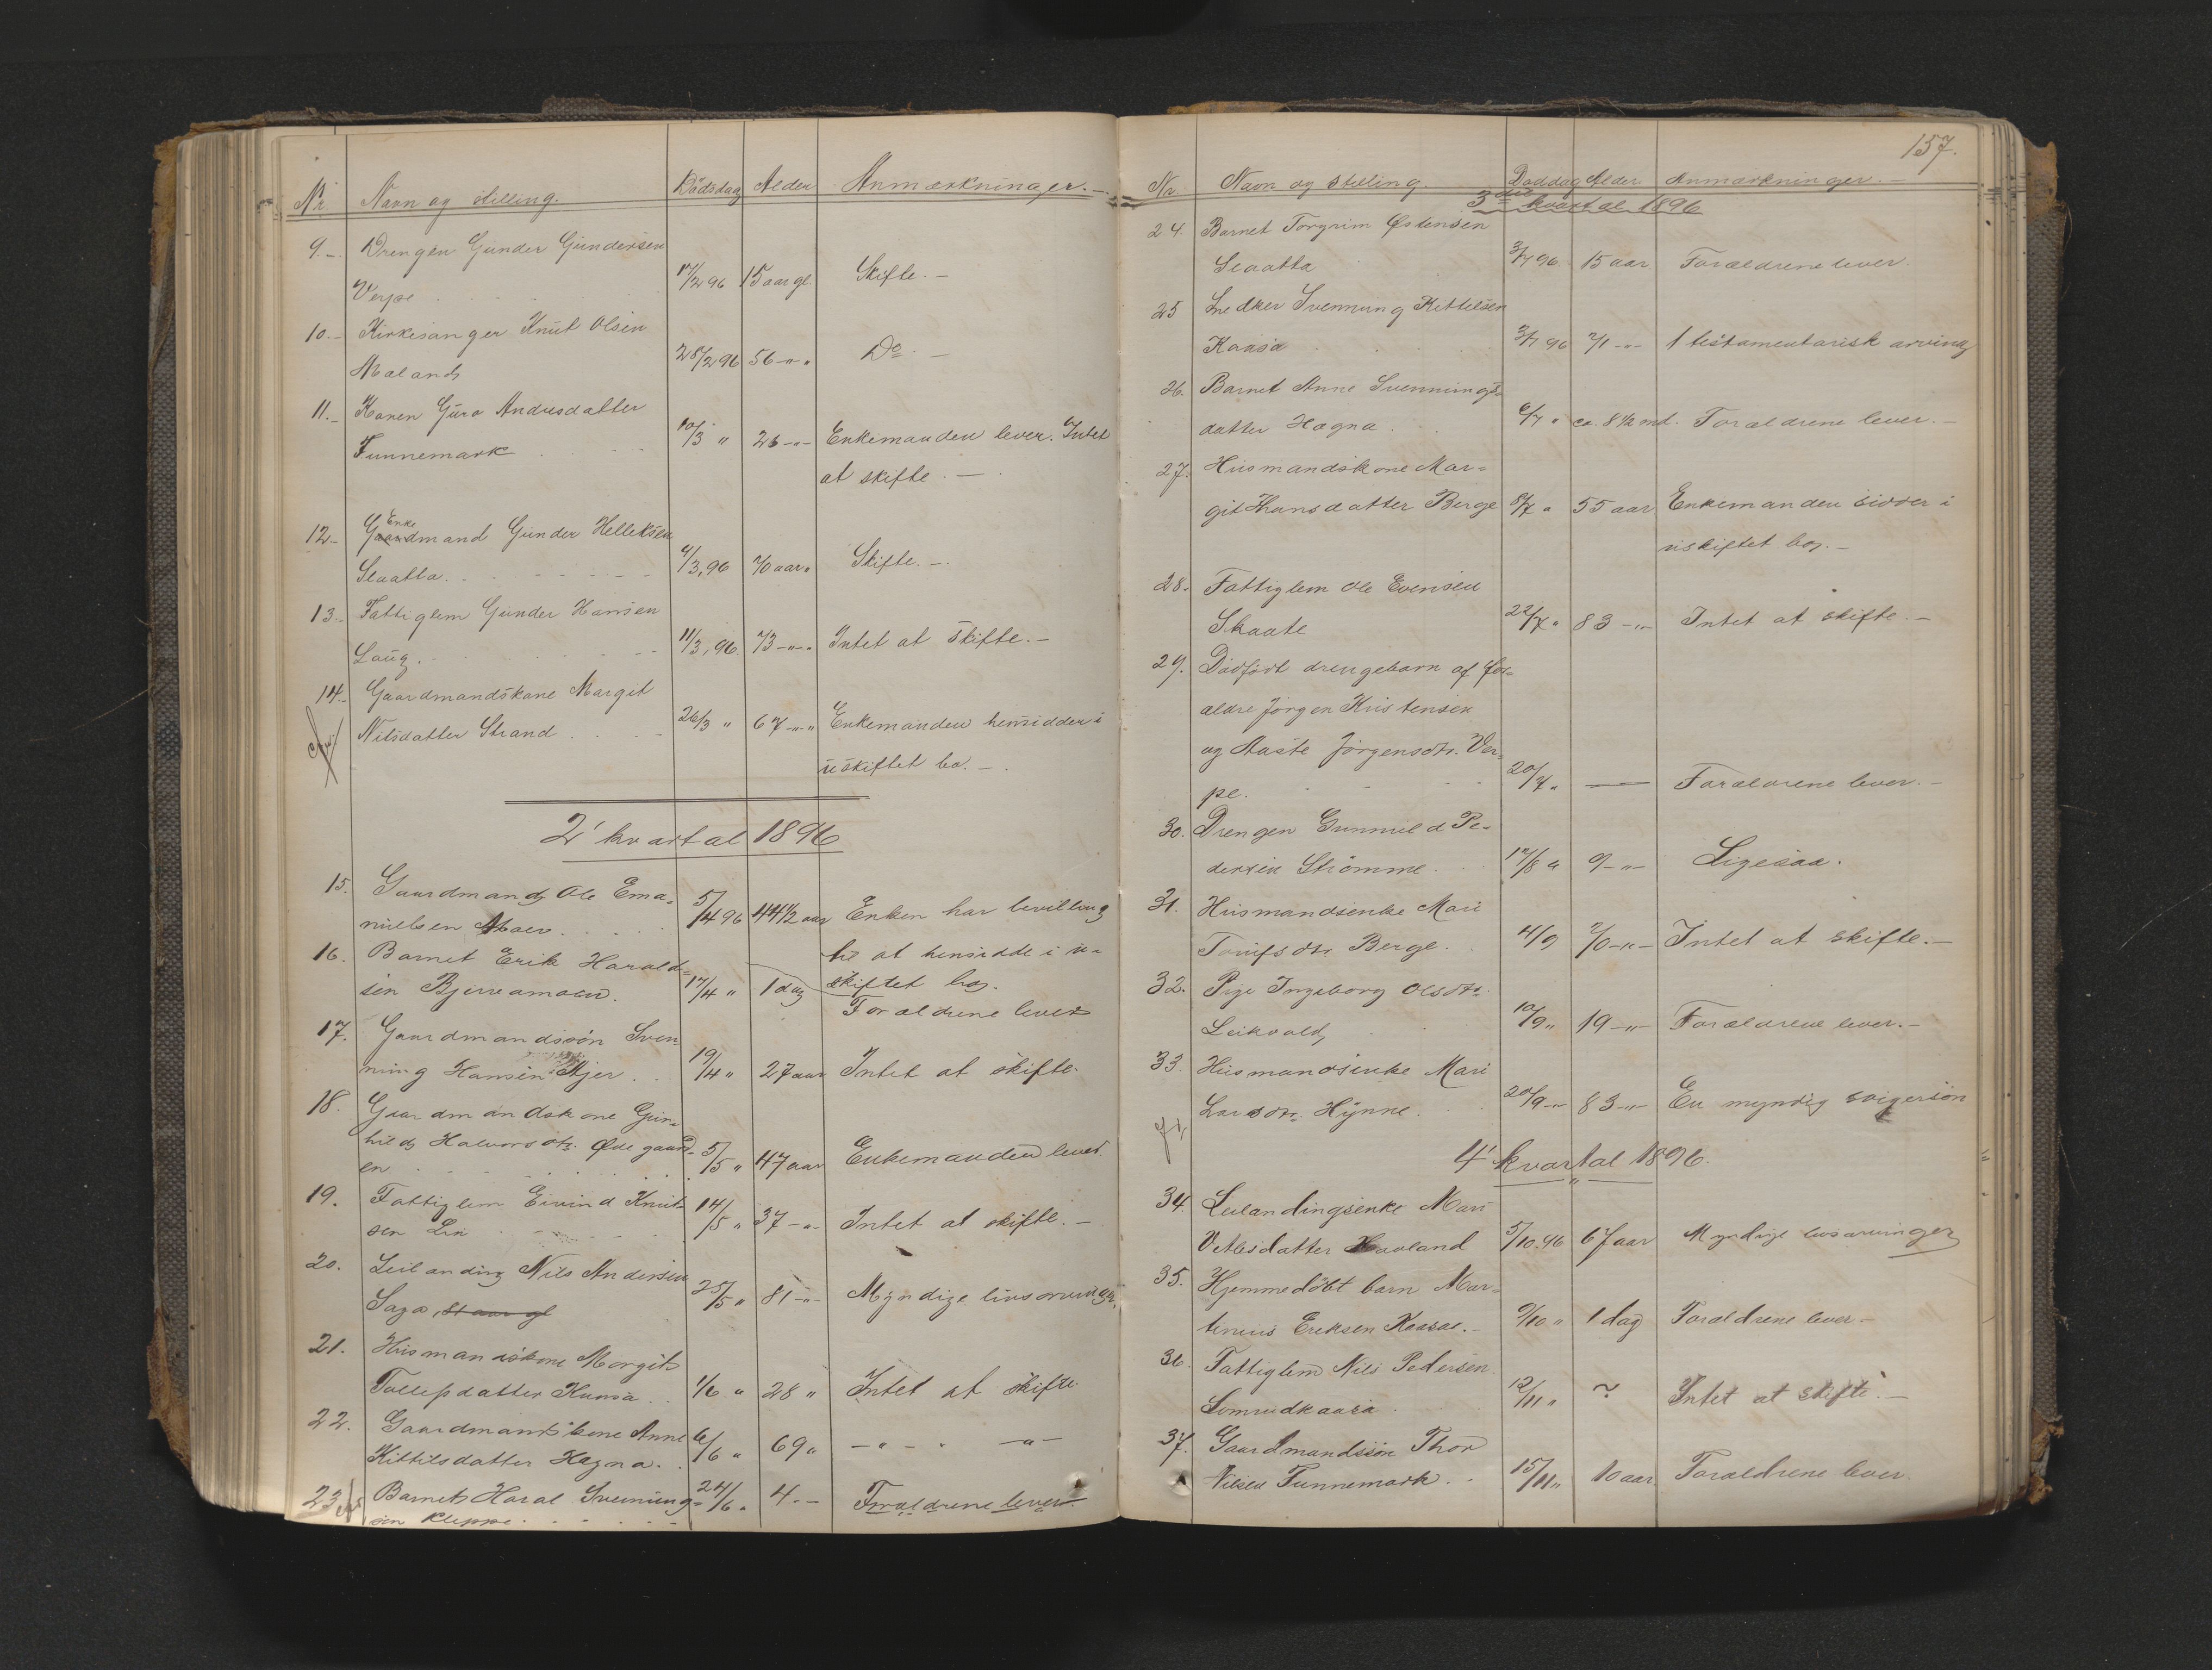 Nr. Navn og stilling. Dödsdag Alder Anmærkninger.-
9.- Drengen Gunder Gundersen
Verpe 17/2 96 15 aar gl. Skifte.-
10.- Kirkesanger Knut Olsen
Æeland 28/2 96 56 -"- Do. -
11.- Konen Guro Andersdatter
Funnemark 10/3 " 26 -"- Enkemanden lever. Intet
at skifte.-
Enke
12.- Gaardmand Gunder Helleksen
Slaatta. 4/3, 96 70 aar " Skifte.-
13.- Fattiglem Gunder Hansen
Laug. 11/3, 96. 73 -"- Intet at skifte.-
14.- Gaardmandskone Margit
Nilsdatter Strand 26/3 " 67 -"- Enkemanden hensidder i
uskiftet bo.-
2' kvartal 1896
15. Gaardmand Ole Ema-
nuelsen Moen 5/4 96 44 1/2 aar Enken har bevilling
til at hensidde i u-
skiftet bo.
16. Barnet Erik Harald-
sen Bjervamoen. 17/4 " 1 dag Foraldrene lever
17. Gaardmandssön Sven-
nung Hansen 19/4 " 27 aar Intet at skifte.
18. Gaardmandskone Gun-
hild Halvorsdtr. Ødegaard-
en 5/5 " 47 aar Enkemanden lever.
19. Fattiglem Eivind Knut-
sen Lin 14/5 " 37 -"- Intet at skifte.-
20. Leilanding Nils Andersen
Saga, 81 aar gl 25/5 " 81 -"- Myndige livsarvinger.
21. Husmandskone Margit
Tollefsdatter Kumsa 1/6 " 28 " Intet at skifte
22. Gaardmandskone Anne
Kittilsdatter Hagna. 6/6 " 69 " -"- " -"-
23. Barnet Haral Svenung-
sen Kleppe. 24/6 " 4.- Foraldrene lever.
157.
Nr. Navn og stilling. Döddag Alder. Anmærkninger.-
3die kvartal 1896
24. Barnet Torgrim Østensen
Slaatta 3/7 96. 15 aar Foraeldrene lever.
25 Svennung Kittelsen
Kaasa 3/7 96 71 -"- 1 testamentarisk arving
26. Barnet Anne Svennungs-
datter Hagna. 6/7 " ca. 8 1/2 md. Foraldrene lever.-
27. Husmandskone Mar-
git Hansdatter Berge 8/7 " 55 aar Enkemanden sidder i
uskiftet bo.-
28. Fattiglem Ole Evensen
Skaate 22/7 " 83 -"- Intet at skifte.-
29. Dødfödt drengebarn af for-
ældre Jørgen Kristensen
og Aaste Jørgensdtr. Ver-
pe. 20/7 " — Foraldrene lever.-
30. Drengen Gunnuld Pe-
dersen Strömme. 17/8 " 9 -"- Ligesaa.
31. Husmandsenke Mari
Toufsdtr Berge. 4/9 70 -"- Intet at skifte.-
32. Pige Ingeborg Olsdtr.
Leikvold 10/9 " 19 -"- Foraldrene lever.-
33. Husmandsenke Mari
Larsdtr. Hynne. 20/9 -"- 83 -"- En myndig svigersön
4' kvartal 1896.
34. Leilandingsenke Mari
Vetlesdatter Haoland 5/10.96 67 aar Myndige livsarvinger
35. Hjemmedöbt barn Mar-
tinius Eriksen Kaasa.- 9/10 " 1 dag Foraldrene lever.-
36. Fattiglem Nils Pedersen
Lomrudkaasa 12/11 " ? Intet at skifte.-
37. Gaardmandssön Thor
Nilsen Funnemark. 15/11 " 10 aar. Foraldrene lever.